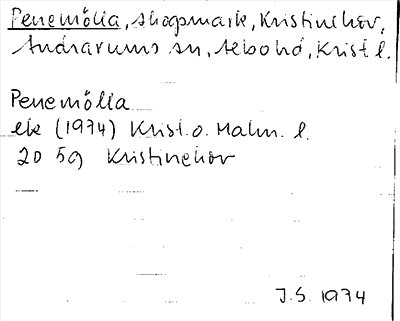 Penemölla, skogsmark, Kristinehov,
Andrarums sn, Albo hd, Krist l.
Penemölla
ek (1974) Krist. o. Malm. l.
20 5g Kristinehov
J.S. 1974